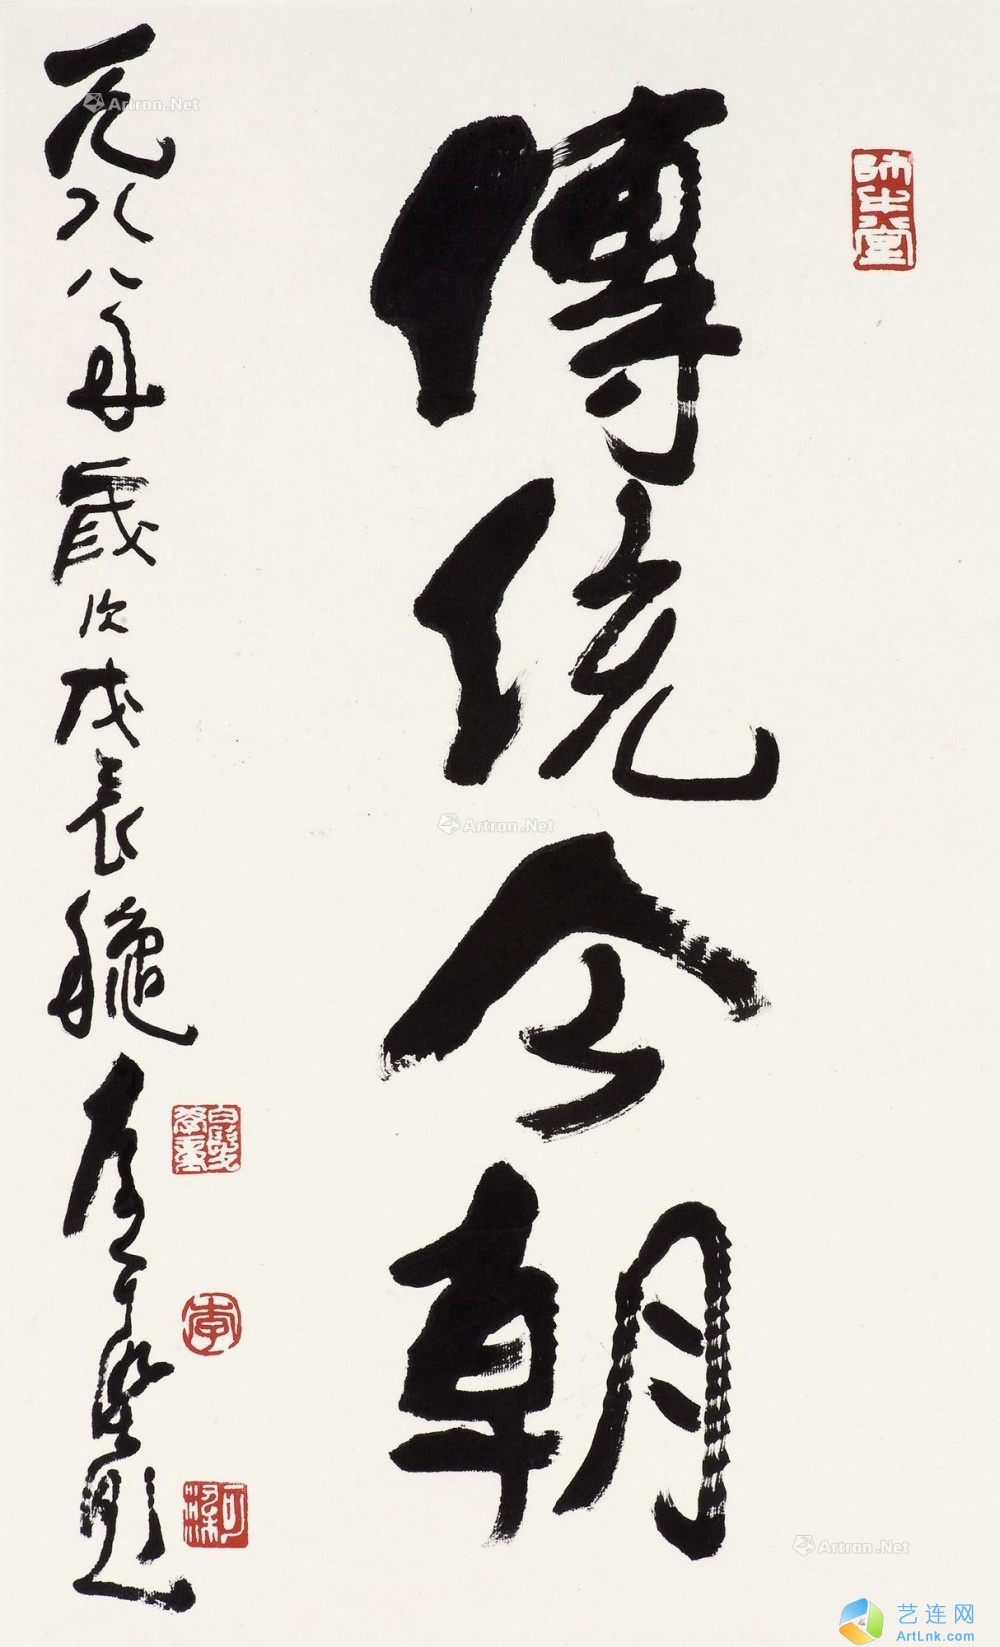 師牛堂
傳統今朝
一九八八年歲次戊辰穐李可染題
白髮學童
李
可染
Artron.Net
Artron.Net
Artron.Net
艺连网
ArtLnk.com